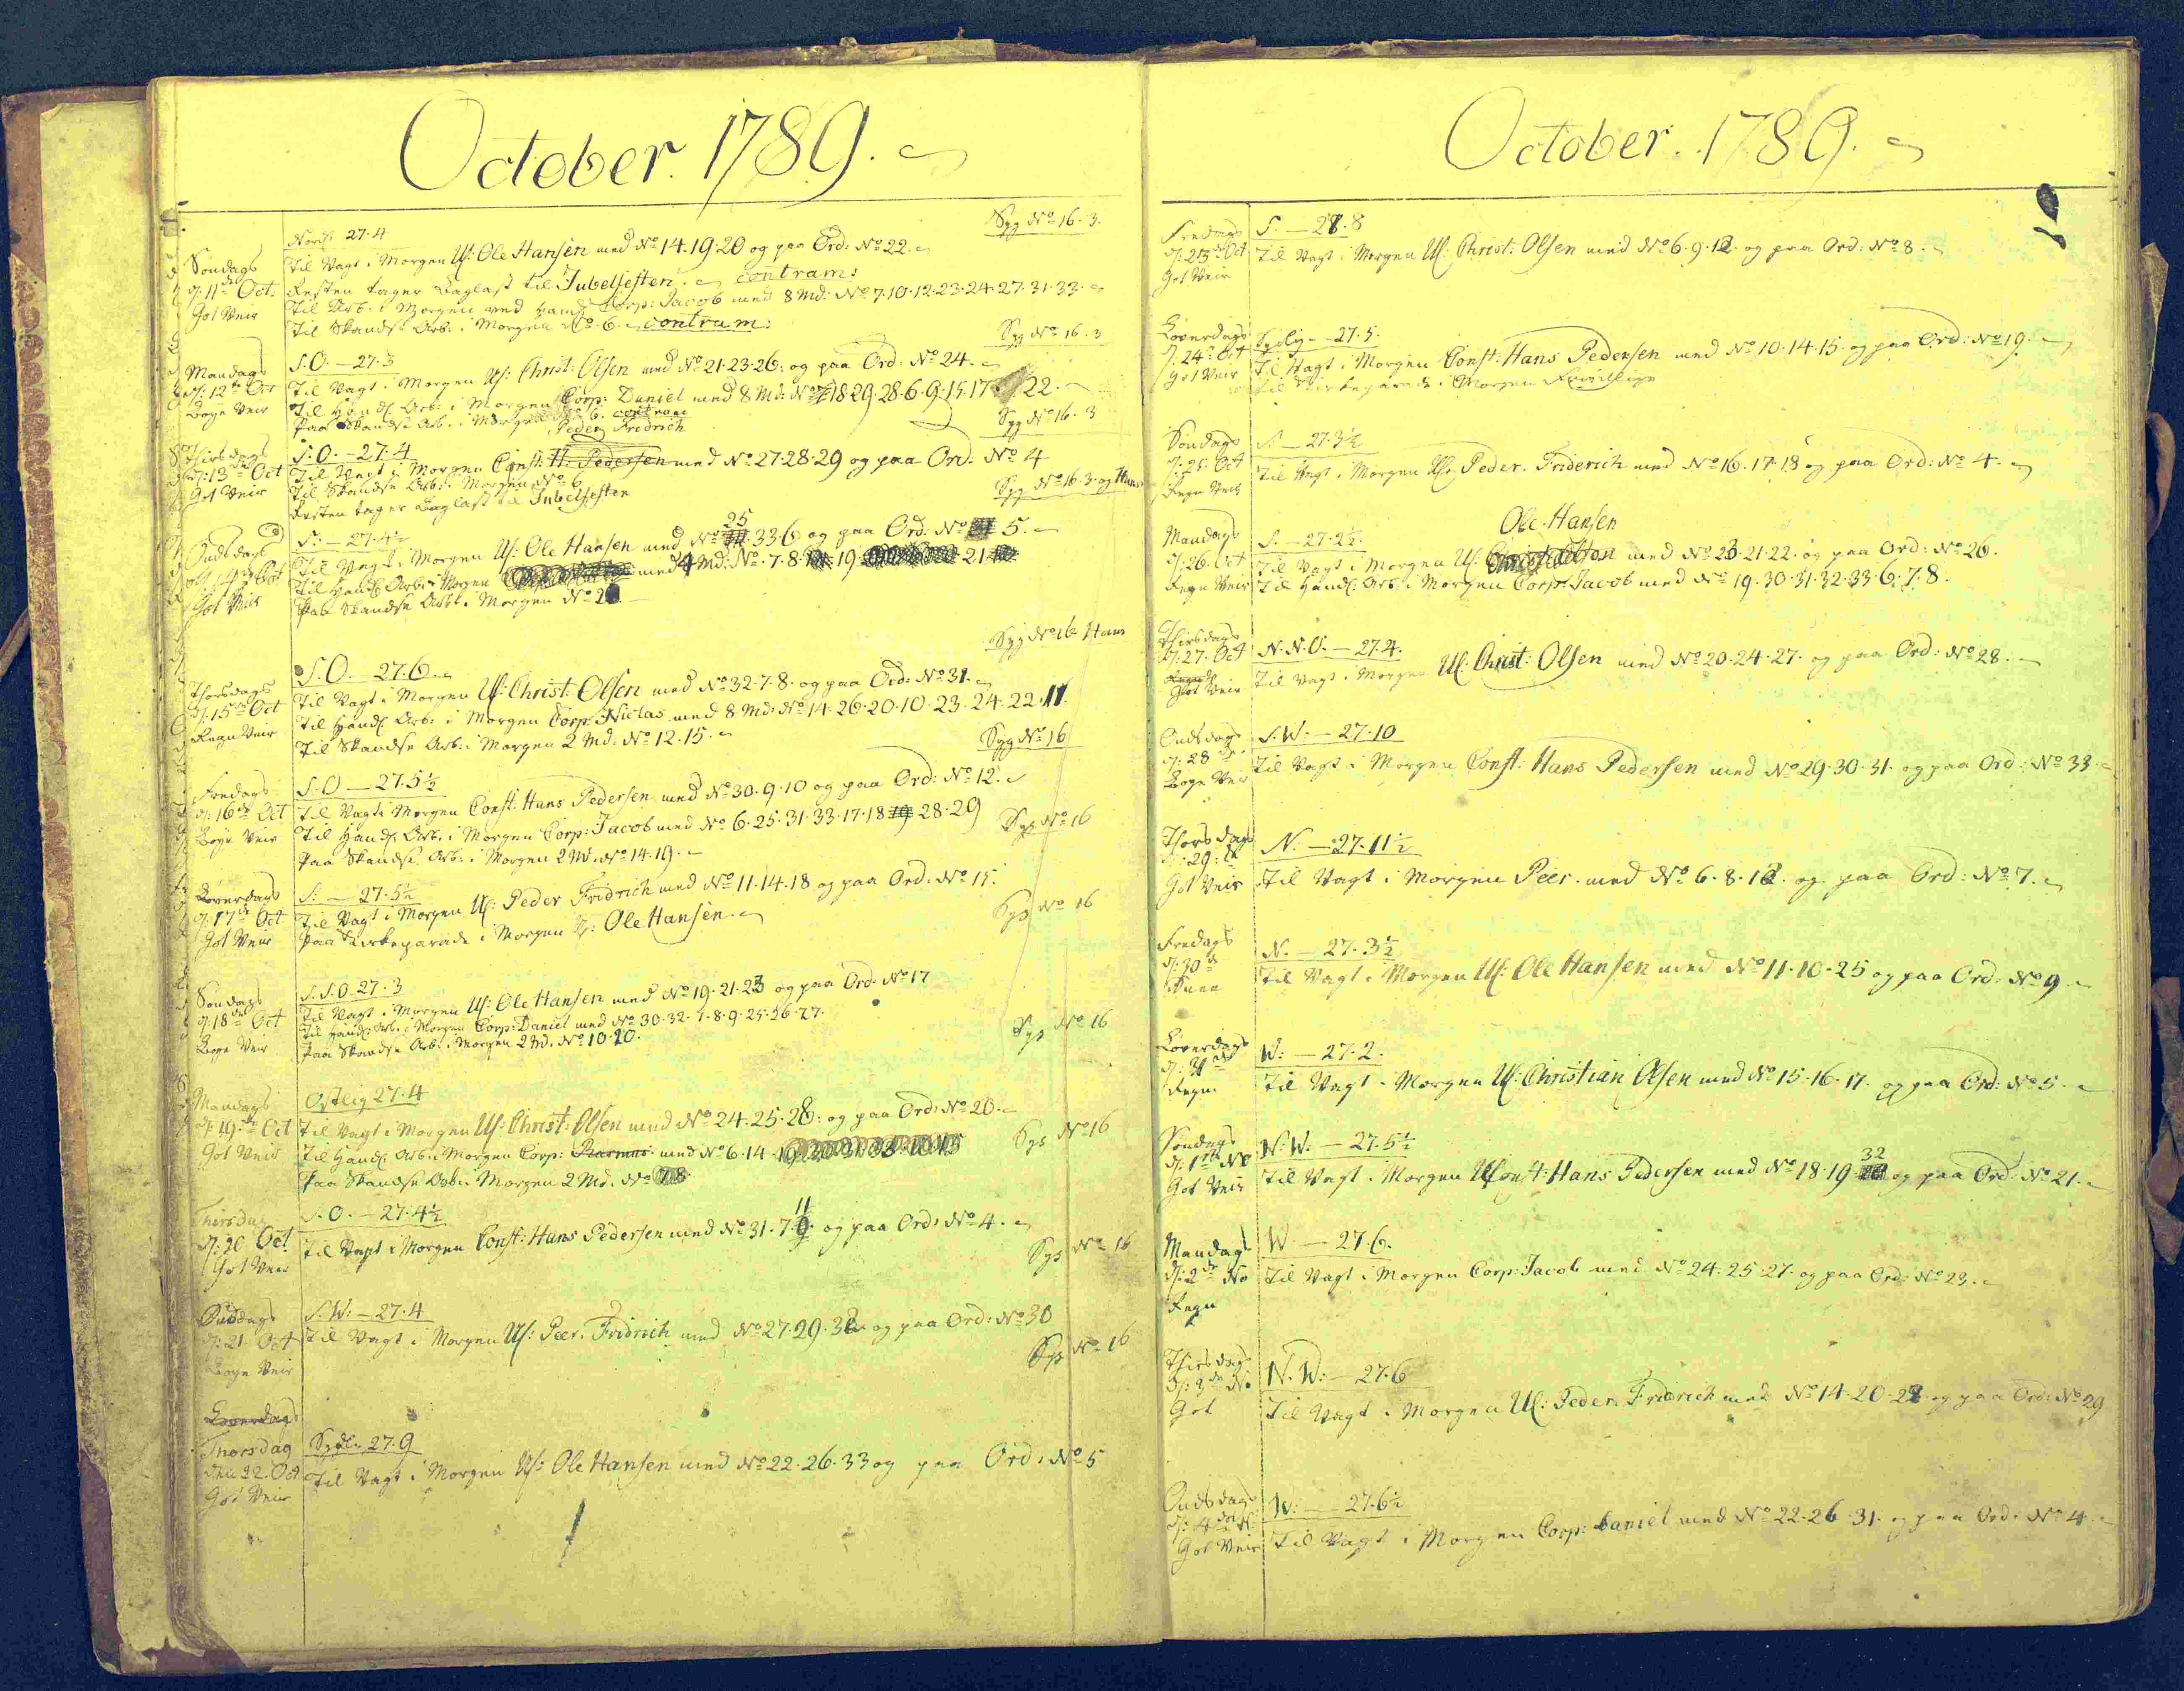 October. 1789.
Nord: 27.4
Syg No 16. 3.
Søndags
d: 11de Oct:
Got Veir
Til Vagt i Morgen Uf: Ole Hansen med No 14. 19. 20 og paa Ord: No 22.
Resten tager Baglast til Jubelfesten. contram:
Til Arb: i Morgen ved Handl Corp: Jacob med 8 Md: No 7. 10. 12. 23. 24. 27. 31. 33.
Til Skandse Arb: i Morgen No 6. contram:
Syg No 16. 3
Mandags
d: 12te Oct
Bøge Veir
S.O. – 27.3
Til Vagt i Morgen Uf: Christ: Olsen med No 21. 23. 26: og paa Ord: No 24.
Til Handl Arb: i Morgen Corp: Daniel med 8 Md: No 18. 29. 28. 6. 9. 15. 17. 22.
Paa Skandse Arb: i Morgen No 6. contram
Syg No 16. 3
Peder Fridrich
Thirsdags
d: 13de Oct
Got Veir
S.O. – 27.4
Til Vagt i Morgen Const: H: Pedersen med No 27. 28. 29 og paa Ord. No 4
Til Skandse Arb: i Morgen No 6
Resten tager Baglast til Jubelfesten
Syg No 16. 3. og Hans
Ondsdags
d: 14de Oct
Got Veir
S: – 27.4½
25
Til Vagt i Morgen Uf: Ole Hansen med No 33. 6 og paa Ord: No 5.
Til Handl Arb: i Morgen med 4 Md: No. 7. 8. 19 21
Paa Skandse Arb: i Morgen No 2
Syg No 16 Hans
Thorsdags
d: 15de Oct
Regn Veir
S.O. – 27.6
Til Vagt i Morgen Uf: Christ: Olsen med No 32. 7. 8. og paa Ord: No 31.
Til Handl Arb: i Morgen Corp: Niclas med 8 Md: No 14. 26. 20. 10. 23. 24. 22. 11.
Til Skandse Arb: i Morgen 2 Md. No 12. 15.
Syg No 16
Fredags
d: 16de Oct
Bøge Veir
S.O – 27.5½
Til Vagt i Morgen Const: Hans Pedersen med No 30. 9. 10 og paa Ord: No 12.
Til Handl Arb: i Morgen Corp: Jacob med No 6. 25. 31. 33. 17. 18 19 28. 29
Syg No 16
Paa Skandse Arb: i Morgen 2 Md. No 14. 19.
Løverdags
d: 17de Oct
Got Veir
S: – 27.5½
Til Vagt i Morgen Uf: Peder Fridrich med No 11. 14. 18 og paa Ord. No 15.
Paa Kirkeparade i Morgen Uf: Ole Hansen.
Syg No 16
Søndags
d: 18de Oct
Bøge Veir
S.S.O. 27.3
Til Vagt i Morgen Uf: Ole Hansen med No 19. 21. 23 og paa Ord. No 17
Til Handl Arb: i Morgen Corp: Daniel med No 30. 32. 7. 8. 9. 25. 26. 27.
Paa Skandse Arb: i Morgen 2 Md. No 10. 20.
Syg No 16
Mandags
d: 19de Oct
Got Veir
Ostlig 27.4
Til Vagt i Morgen Uf: Christ: Olsen med No 24. 25. 28: og paa Ord: No 20.
Til Handl Arb: i Morgen Corp: Rasmus med No 6. 14. 19
Paa Skandse Arb: i Morgen 2 Md. No 7 8
Syg No 16
Thirsdag
d: 20 Oct
Got Veir
S.O. – 27.4½
11
Til Vagt i Morgen Const: Hans Pedersen med No 31. 7. 9. og paa Ord: No 4.
Syg No 16
Ondsdags
d: 21. Oct
Bøge Veir
S.W: – 27.4
Til Vagt i Morgen Uf: Peer. Fridrich med No 27. 29. 32 og paa Ord: No 30
Syg No 16
Løverdag
Thorsdag
den 22. Oct
Got Veir
Sydl: 27.9
Til Vagt i Morgen Uf: Ole Hansen med No 22. 26. 33 og paa Ord: No 5
October. 1789.
Fredags
d: 23de Oct
Got Veir
S. – 28.8
Til Vagt i Morgen Uf: Christ: Olsen med No 6. 9. 12. og paa Ord: No 8.
Løverdags
d: 24de Oct
Got Veir
Sydlig – 27.5.
Til Vagt i Morgen Const: Hans Pedersen med No 10. 14. 15. og paa Ord: No 19.
Til Kirkeparade i Morgen Frivillige
Søndags
d: 25. Oct
Regn Veir
S: – 27.3½
Til Vagt i Morgen Uf: Peder. Friderich med No 16. 17. 18 og paa Ord: No 4.
Ole Hansen
Mandags
d: 26. Oct
Regn Veir
S. – 27.2½.
Til Vagt i Morgen Uf: Christ: Olsen med No 23. 21. 22. og paa Ord: No 26.
Til Handl: Arb: i Morgen Corp: Jacob med No 19. 30. 31. 32. 33. 6. 7. 8.
Thirsdags
d: 27. Oct
Got Veir
N.N.O. – 27.4.
Til Vagt i Morgen Uf: Christ: Olsen med No 20. 24. 27. og paa Ord: No 28.
Ondsdags
d: 28de
Bøge Veir
S.W: – 27.10
Til Vagt i Morgen Const: Hans Pedersen med No 29. 30. 31. og paa Ord: No 33.
Thorsdags
d: 29: de
Got Veir
N. – 27.11½
Til Vagt i Morgen Peer. med No 6. 8. 12. og paa Ord: No 7.
Fredags
d: 30de
N. – 27.3½
Til Vagt i Morgen Uf: Ole Hansen med No 11. 10. 25 og paa Ord: No 9
Løverdags
d: 31de
Regn.
W: – 27.2.
Til Vagt i Morgen Uf: Christian Olsen med No 15. 16. 17. og paa Ord: No 5.
Søndags
d: 1ste No
Got Veir
N.W: – 27.5½
32
Til Vagt i Morgen Const: Hans Pedersen med No 18. 19. og paa Ord: No 21.
Mandags
d: 2de No
Regn
W – 27.6.
Til Vagt i Morgen Corp: Jacob med No 24. 25. 27. og paa Ord: No 23.
Thirsdags
d: 3de No
Got
N.W: – 27.6
Til Vagt i Morgen Uf: Peder. Friderich med No 14. 20. 28 og paa Ord: No 29
Ondsdags
d: 4de N.
Got Veir
W: – 27.6½
Til Vagt i Morgen Corp: Daniel med No 22. 26. 31. og paa Ord: No 4.